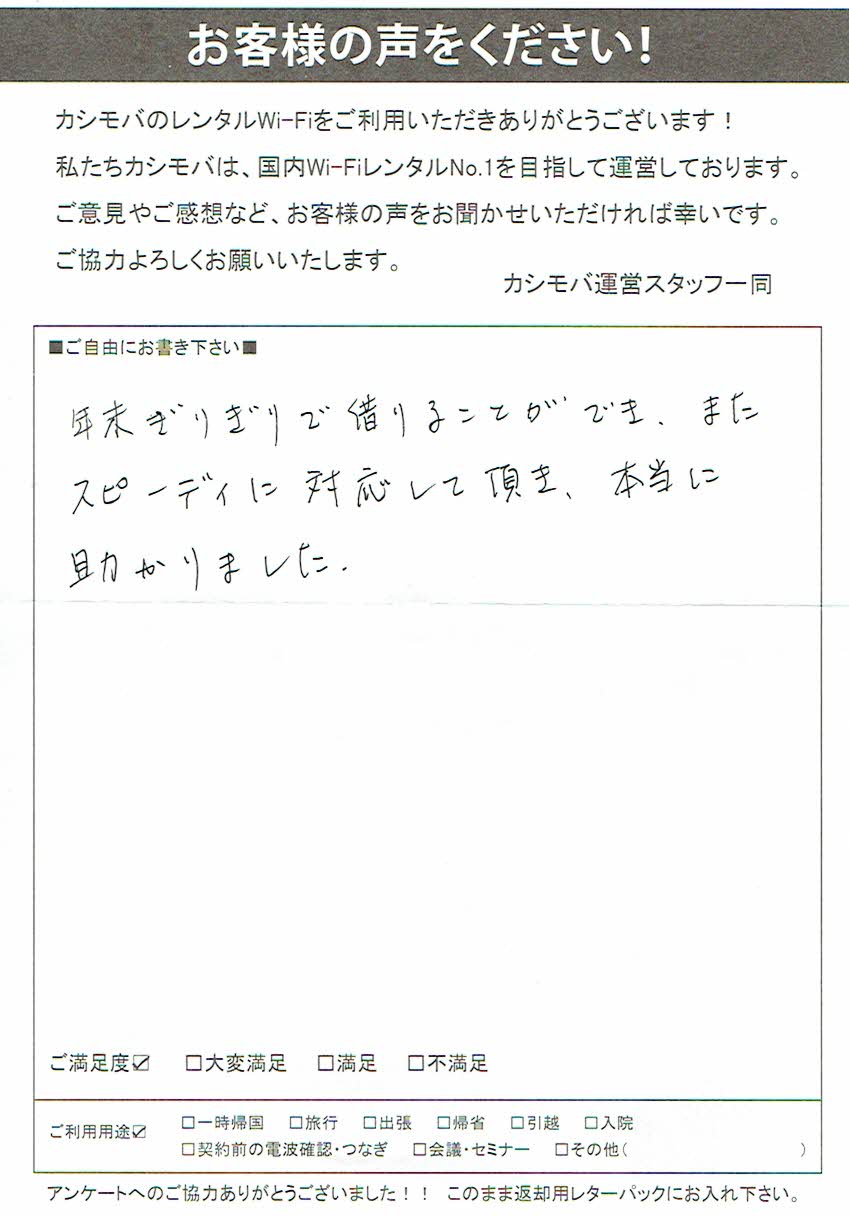 お客様の声をください！
カシモバのレンタルWi-Fiをご利用いただきありがとうございます！
私たちカシモバは、国内Wi-FiレンタルNo.1を目指して運営しております。
ご意見やご感想など、お客様の声をお聞かせいただければ幸いです。
ご協力よろしくお願いいたします。
カシモバ運営スタッフ一同
■ご自由にお書き下さい■
年末ぎりぎりで借りることができ、また
スピーディに対応して頂き、本当に
助かりました.
ご満足度☑ □大変満足 □満足 □不満足
ご利用用途☑ □一時帰国 □旅行 □出張 □帰省 □引越 □入院
□契約前の電波確認・つなぎ □会議・セミナー □その他( )
アンケートへのご協力ありがとうございました！！ このまま返却用レターパックにお入れ下さい。